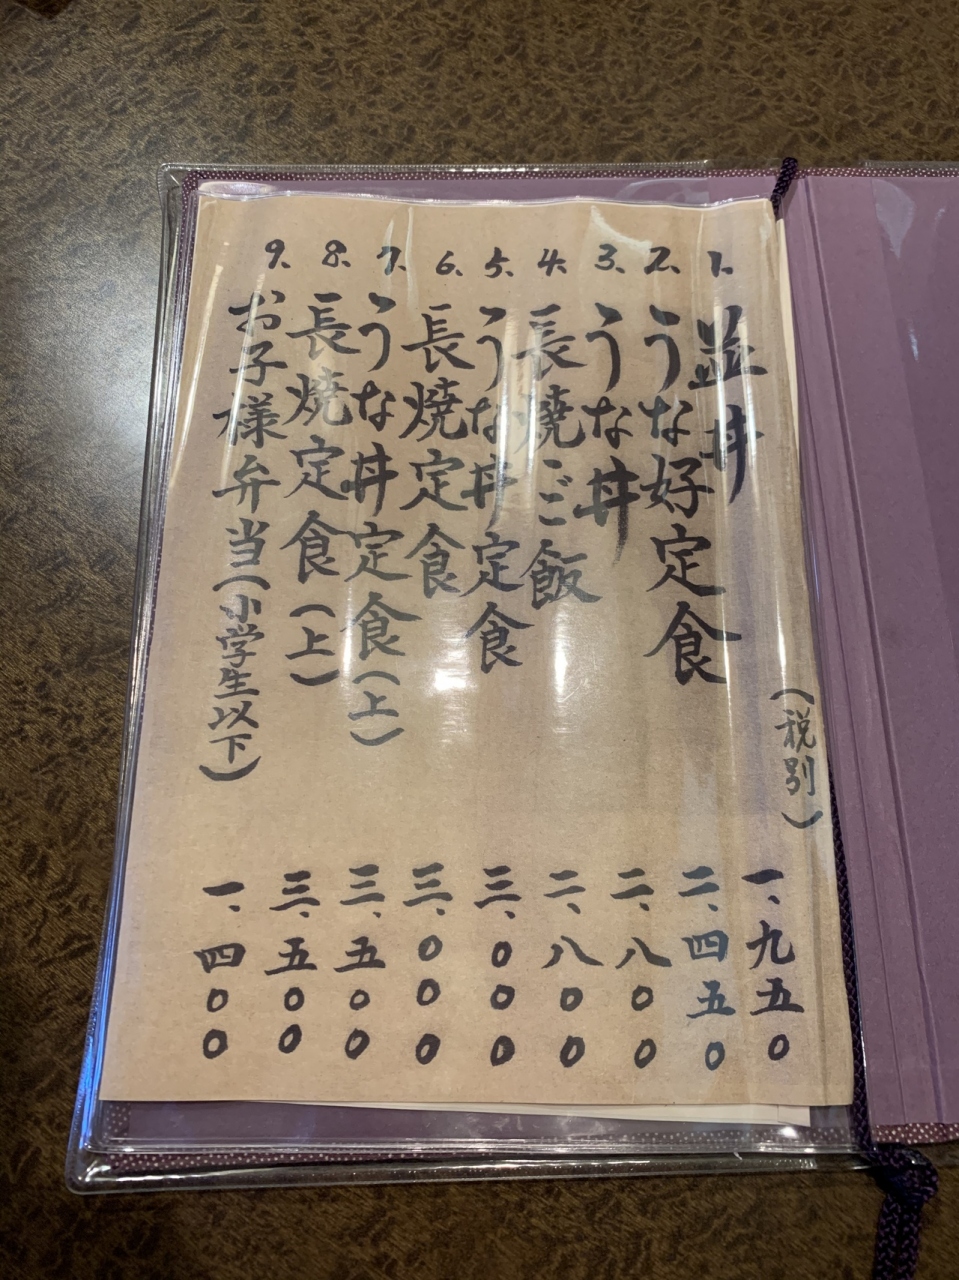 (税別)
1. 並丼 一、九五〇
2. うな好定食 二、四五〇
3. うな丼 二、八〇〇
4. 長焼ご飯 二、八〇〇
5. うな丼定食 三、〇〇〇
6. 長焼定食 三、〇〇〇
7. うな丼定食(上) 三、五〇〇
8. 長焼定食(上) 三、五〇〇
9. お子様弁当(小学生以下) 一、四〇〇